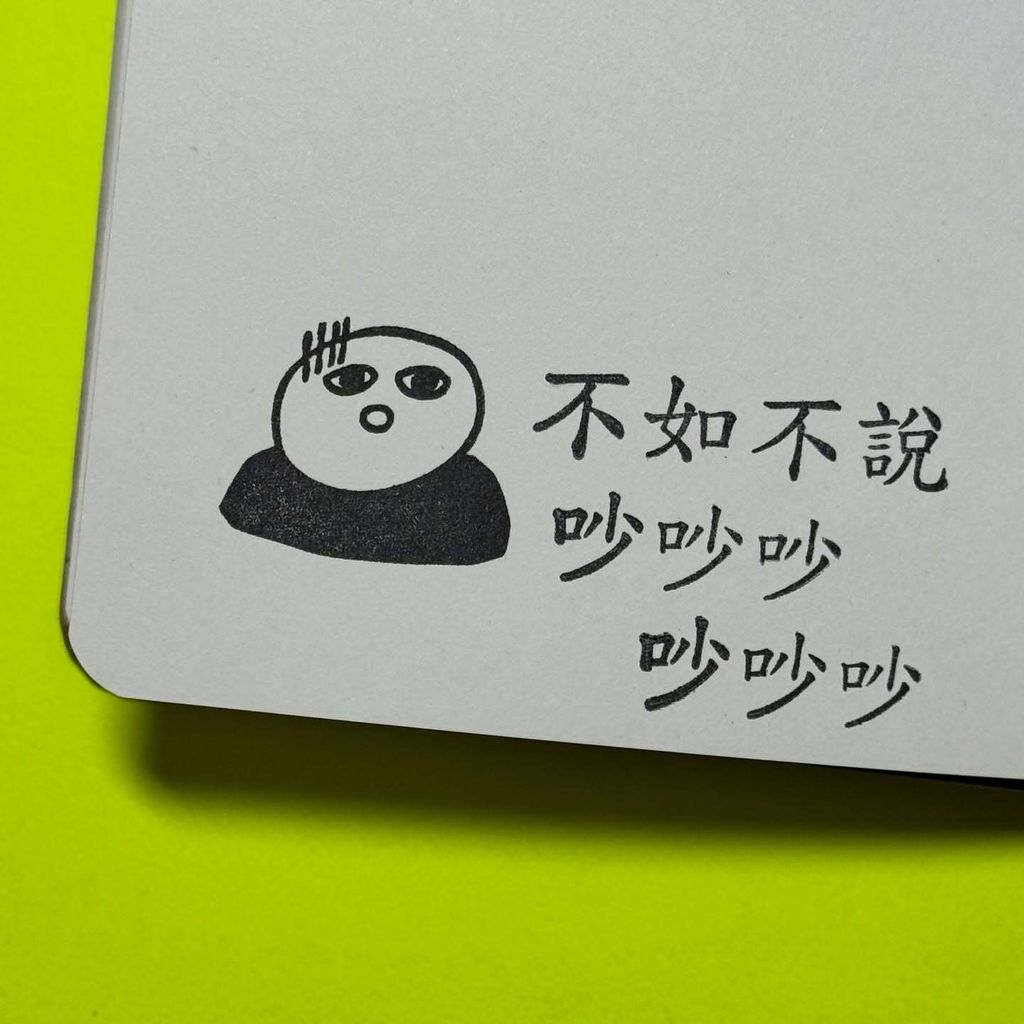 不如不說
吵吵吵
吵吵吵